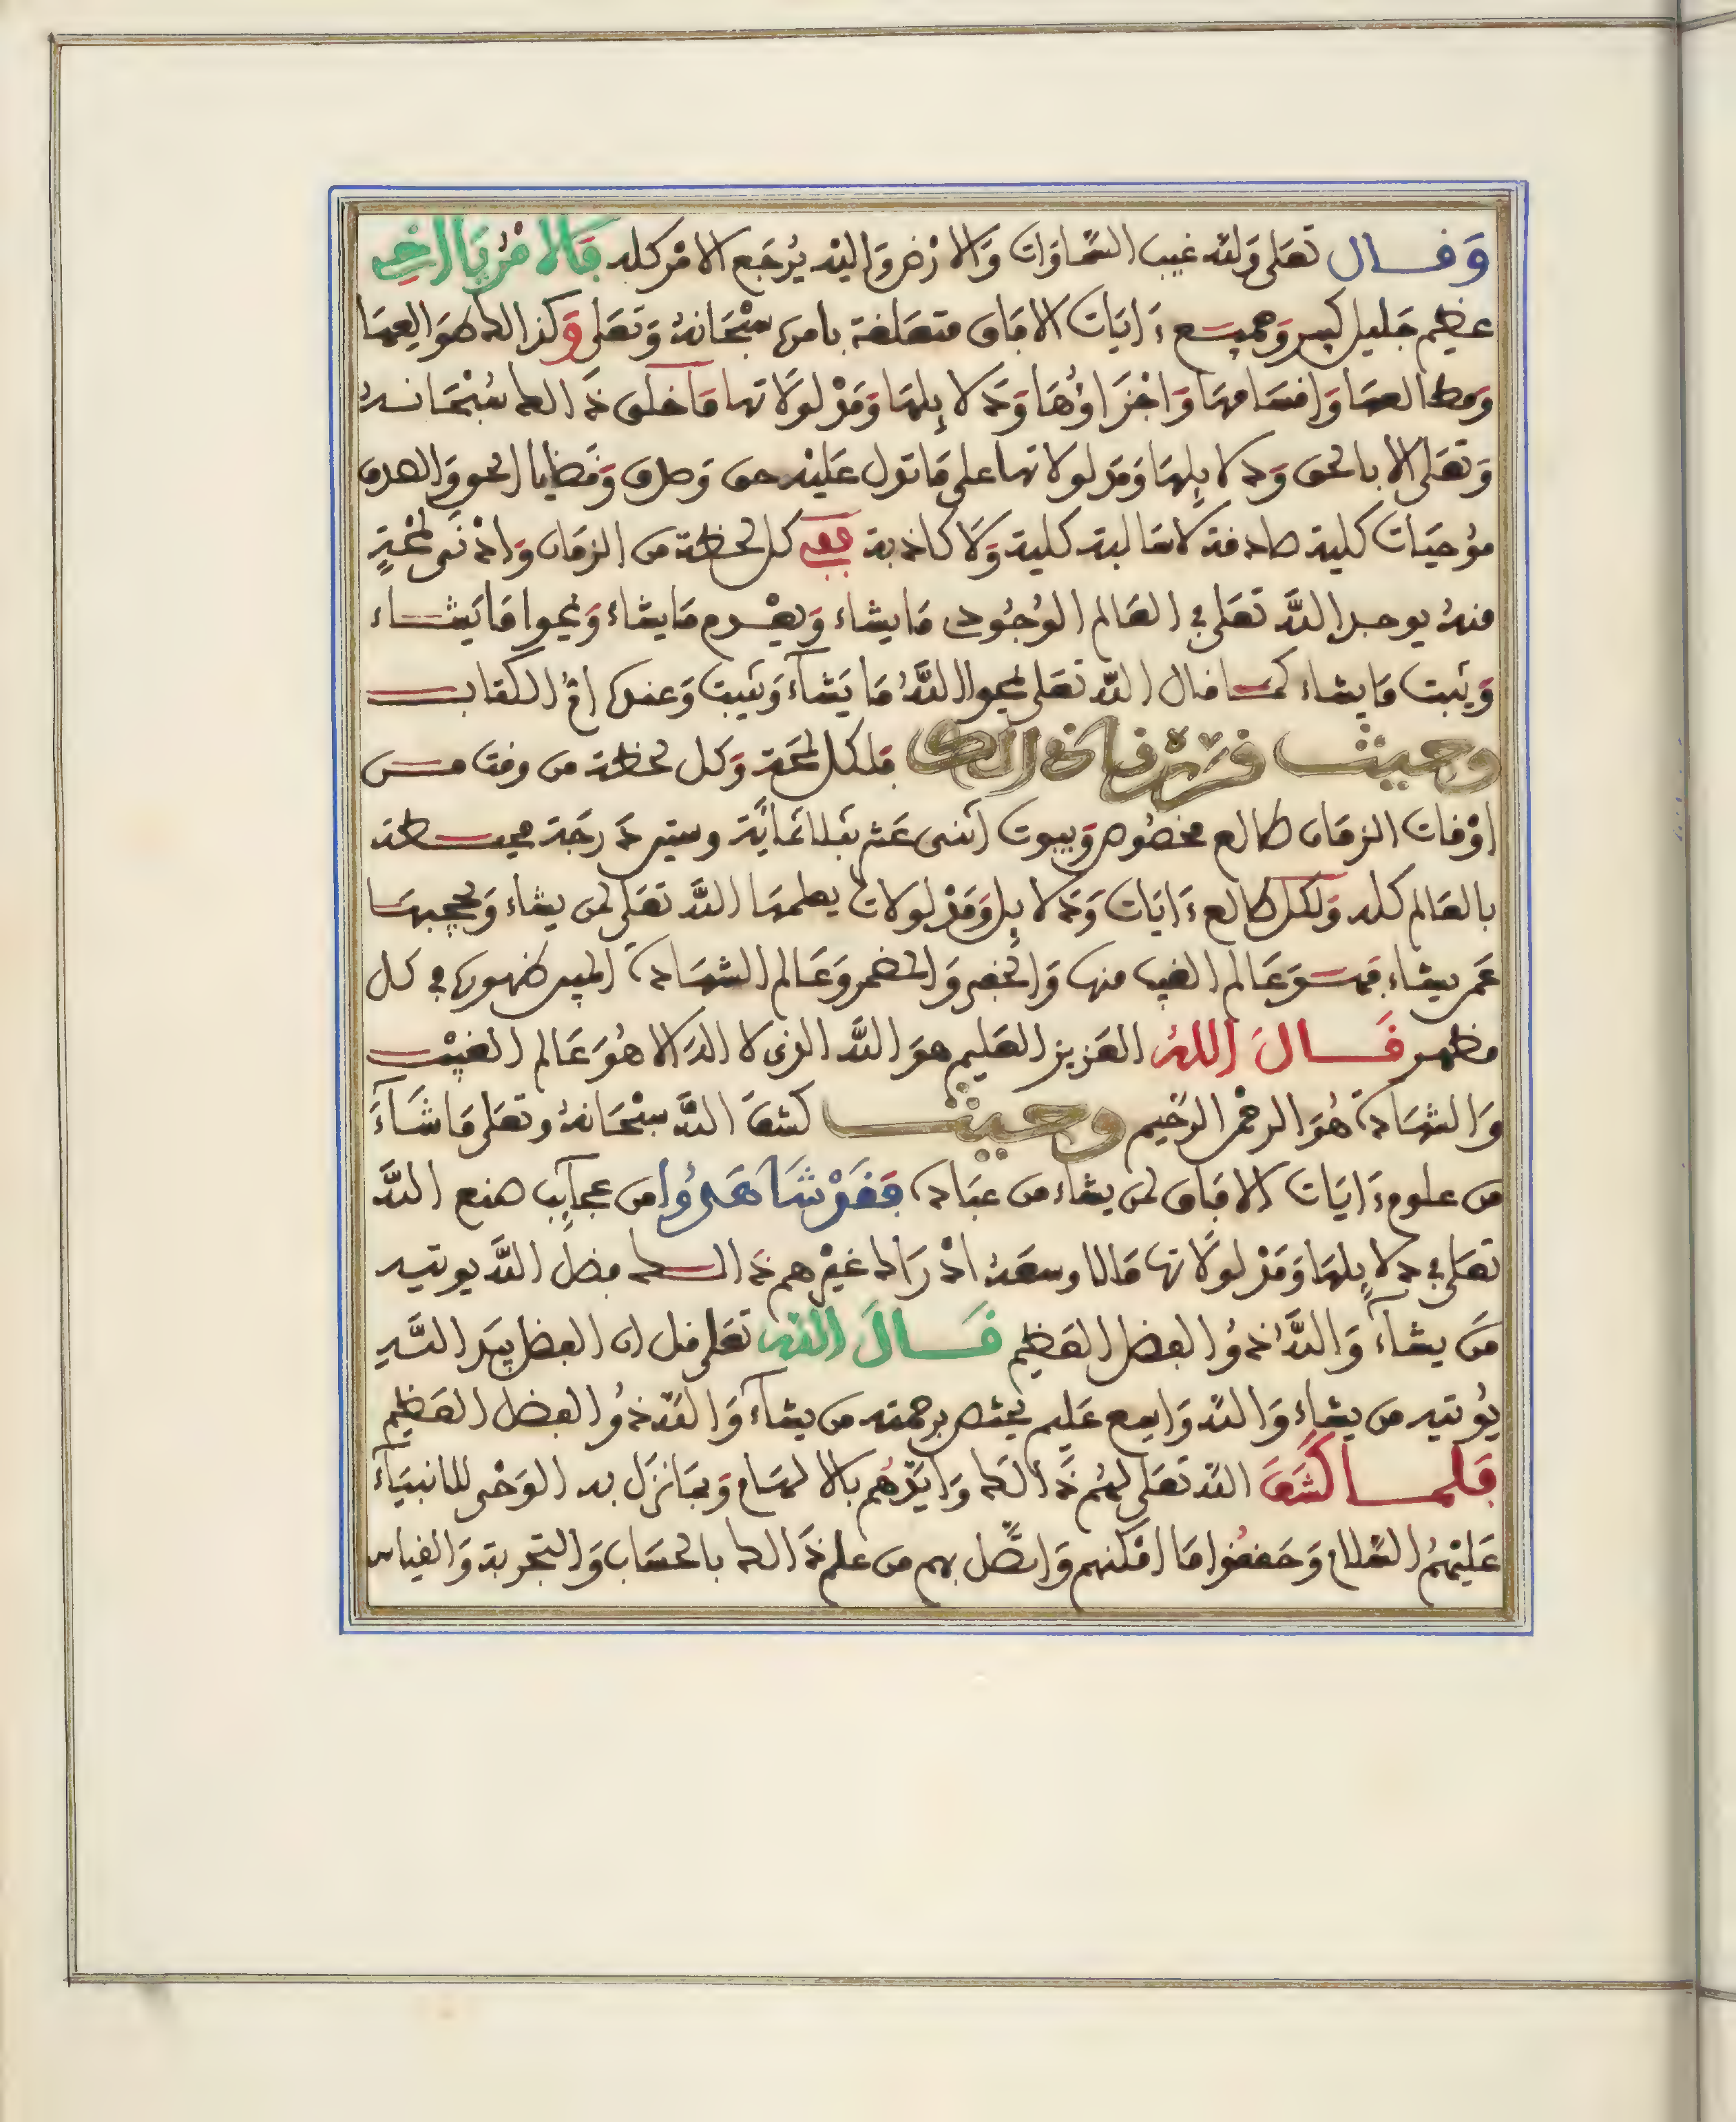 وَقال تعلى وَلله غيب السَّمَاوَات وَالارْض وَاليْه يُرجَع الامْر كله فَالامْرُ يَا اخِى
عظيم جَليل كبير وَجميع ءَايَات الافَاق متعلقة بامره سبْحَانهُ وَتعَلى وَكذالك هوَ العِمَا
وَخط العصَا وَاقسَامهَا وَاجْزَاؤُهَا وَدلايِلهَا وَمَدْلولاتها مَا خلق ذَالك سُبْحَانه
وَتعَلى الا بالحق وَدلايِلهَا وَمَدلولاتها على مَا تدل عَليْه حق وَصدق وَقضَايا الحق وَالصدق
مُوجبَات كلية صادقة لا سَالبة كلية وَلا كاذبة ففى كل لحظة من الزمَان وَادْنَى لمْحَةٍ
منهُ يوجد اللَّه تعَلى فى العَالم الوُجُودى مَا يشاء وَيعْدم مَا يشاء وَيمحوا مَا يَشاء
وَيثبت مَا يشاء كما قال اللَّه تعَلى يمحوا اللَّهُ مَا يَشآء وَيثبت وَعنده امُّ الكتاب
وحيث قررنا ذالك فلكل لمحَة وَكل لحظة من وقت من
اوْقات الزمَان طالع مخصُوص وَبيوت اثنى عَشر بثلاثمَائَة وستين دَرجَة محيطة
بالعَالم كله وَلكل طالع ءَايَات وَدلايِل وَمَدْلولات يطلعهَا اللَّه تعَلى لمن يشاء وَيحجبهَا
عَمن يشاء فهُوَ عَالم الغيب منها وَالخفى وَالمضمر وَعَالم الشهَادة المبين ظهورها فى كل
مظهر قَالَ اللهُ العَزيز العَليم هوَ اللَّه الذى لا اله الا هُوَ عَالم الغيْب
وَالشهَادة هُوَ الرحْمن الرحيم وحيث كشفَ اللَّه سبْحَانهُ وتعَلى مَا شَآءَ
من علوم ءَايَات الافَاق لمن يشاء من عبَاده فَقَدْ شَاهَدُوا من عجآيِب صنع اللَّه
تعَلى فى دلايِلهَا وَمَدْلولَاتها مَا لا وسعَهُ ادْرَاك غيْرهم ذَالك فضل اللَّه يوتيه
مَن يشآء وَاللَّهُ ذُو الفضل العَظيم قَالَ اللهُ تعَلى قل ان الفضل بيَد اللَّه
يُوتيه من يشاء وَاللَّه وَاسع عَليم يختص برحمته من يشآء وَاللَّه ذُو الفضل العَظيم
فَلما كشَفَ اللَّه تعَلى لهُم ذَالك وَايَّدَهُم بالالهَام وَبمَا نزَل به الوَحْى للانبيَآء
عَليْهمُ السَّلام وَحَققُوا مَا امْكنهم وَاتصَّل بهم من علم ذَالك بالحسَاب وَالتجربة وَالقياس